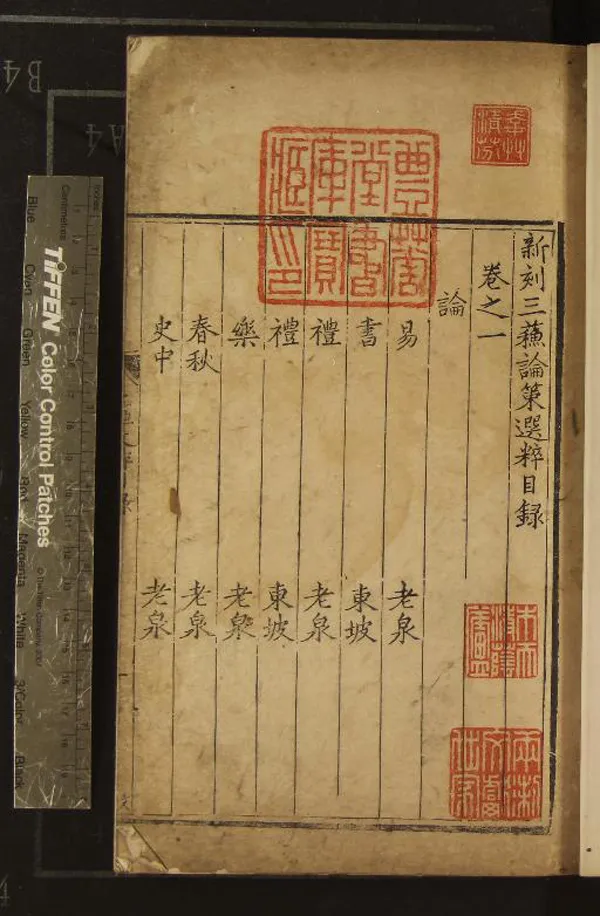 新刻三蘓論策選粹目錄
卷之一
論
易 老泉
書 東坡
禮 老泉
禮 東坡
樂 老泉
春秋 老泉
史中 老泉
TIFFEN Color Control Patches
© The Tiffen Company, 2007
Centimetres
Inches
Blue
Cyan
Green
Yellow
Red
Magenta
White
3/Color
Black
B4
A4